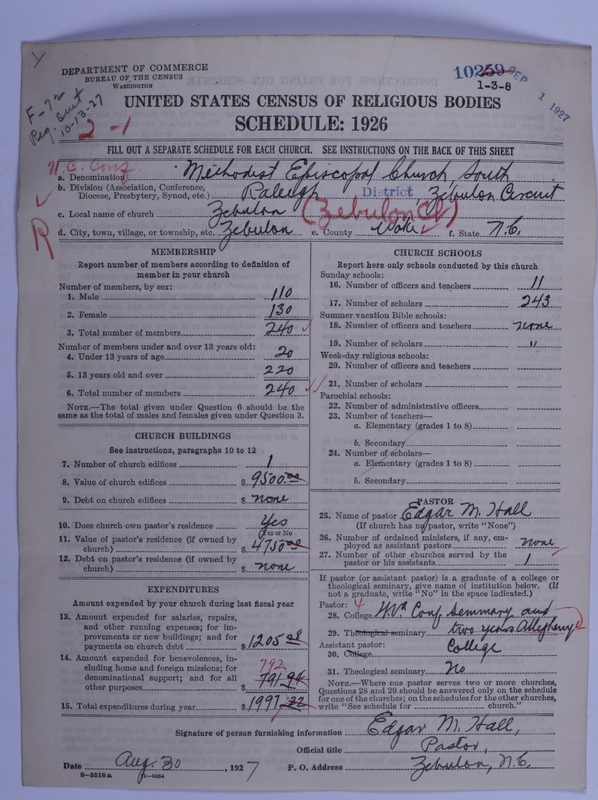 DEPARTMENT OF COMMERCE
BUREAU OF THE CENSUS
WASHINGTON
10259
1-3-8
SEP 1 1927
F-72
Reg. Sent
10-13-27
2-1
UNITED STATES CENSUS OF RELIGIOUS BODIES
SCHEDULE: 1926
FILL OUT A SEPARATE SCHEDULE FOR EACH CHURCH. SEE INSTRUCTIONS ON THE BACK OF THIS SHEET
N.C. Conf
a. Denomination Methodist Episcopal Church, South
b. Division (Association, Conference, Diocese, Presbytery, Synod, etc.) Raleigh District, Zebulon Circuit
c. Local name of church Zebulon (Zebulon Ct)
d. City, town, village, or township, etc. Zebulon e. County Wake f. State N.C.
R
MEMBERSHIP
Report number of members according to definition of
member in your church
Number of members, by sex:
1. Male 110
2. Female 130
3. Total number of members 240
Number of members under and over 13 years old:
4. Under 13 years of age 20
5. 13 years old and over 220
6. Total number of members 240
NOTE.—The total given under Question 6 should be the
same as the total of males and females given under Question 3.
CHURCH BUILDINGS
See instructions, paragraphs 10 to 12
7. Number of church edifices 1
8. Value of church edifices $ 9500.00
9. Debt on church edifices $ none
10. Does church own pastor's residence Yes
Yes or No
11. Value of pastor's residence (if owned by
church) $ 4750.00
12. Debt on pastor's residence (if owned by
church) $ none
EXPENDITURES
Amount expended by your church during last fiscal year
13. Amount expended for salaries, repairs,
and other running expenses; for im-
provements or new buildings; and for
payments on church debt $ 1205.28
14. Amount expended for benevolences, in-
cluding home and foreign missions; for
denominational support; and for all
other purposes $ 791.94
792
15. Total expenditures during year $ 1997.22
CHURCH SCHOOLS
Report here only schools conducted by this church
Sunday schools:
16. Number of officers and teachers 11
17. Number of scholars 243
Summer vacation Bible schools:
18. Number of officers and teachers none
19. Number of scholars "
Week-day religious schools:
20. Number of officers and teachers
21. Number of scholars
Parochial schools:
22. Number of administrative officers
23. Number of teachers—
a. Elementary (grades 1 to 8)
b. Secondary
24. Number of scholars—
a. Elementary (grades 1 to 8)
b. Secondary
PASTOR
25. Name of pastor Edgar M. Hall
(If church has no pastor, write "None")
26. Number of ordained ministers, if any, em-
ployed as assistant pastors none
27. Number of other churches served by the
pastor or his assistants 1
If pastor (or assistant pastor) is a graduate of a college or
theological seminary, give name of institution below. (If
not a graduate, write "No" in the space indicated.)
Pastor: 4
28. College W.Va. Conf. Seminary and
29. Theological seminary two years Allegheny
Assistant pastor: College
30. College
31. Theological seminary No
NOTE.—Where one pastor serves two or more churches,
Questions 28 and 29 should be answered only on the schedule
for one of the churches; on the schedules for the other churches,
write "See schedule for church."
Signature of person furnishing information Edgar M. Hall,
Official title Pastor,
Date Aug. 30, 1927 P. O. Address Zebulon, N.C.